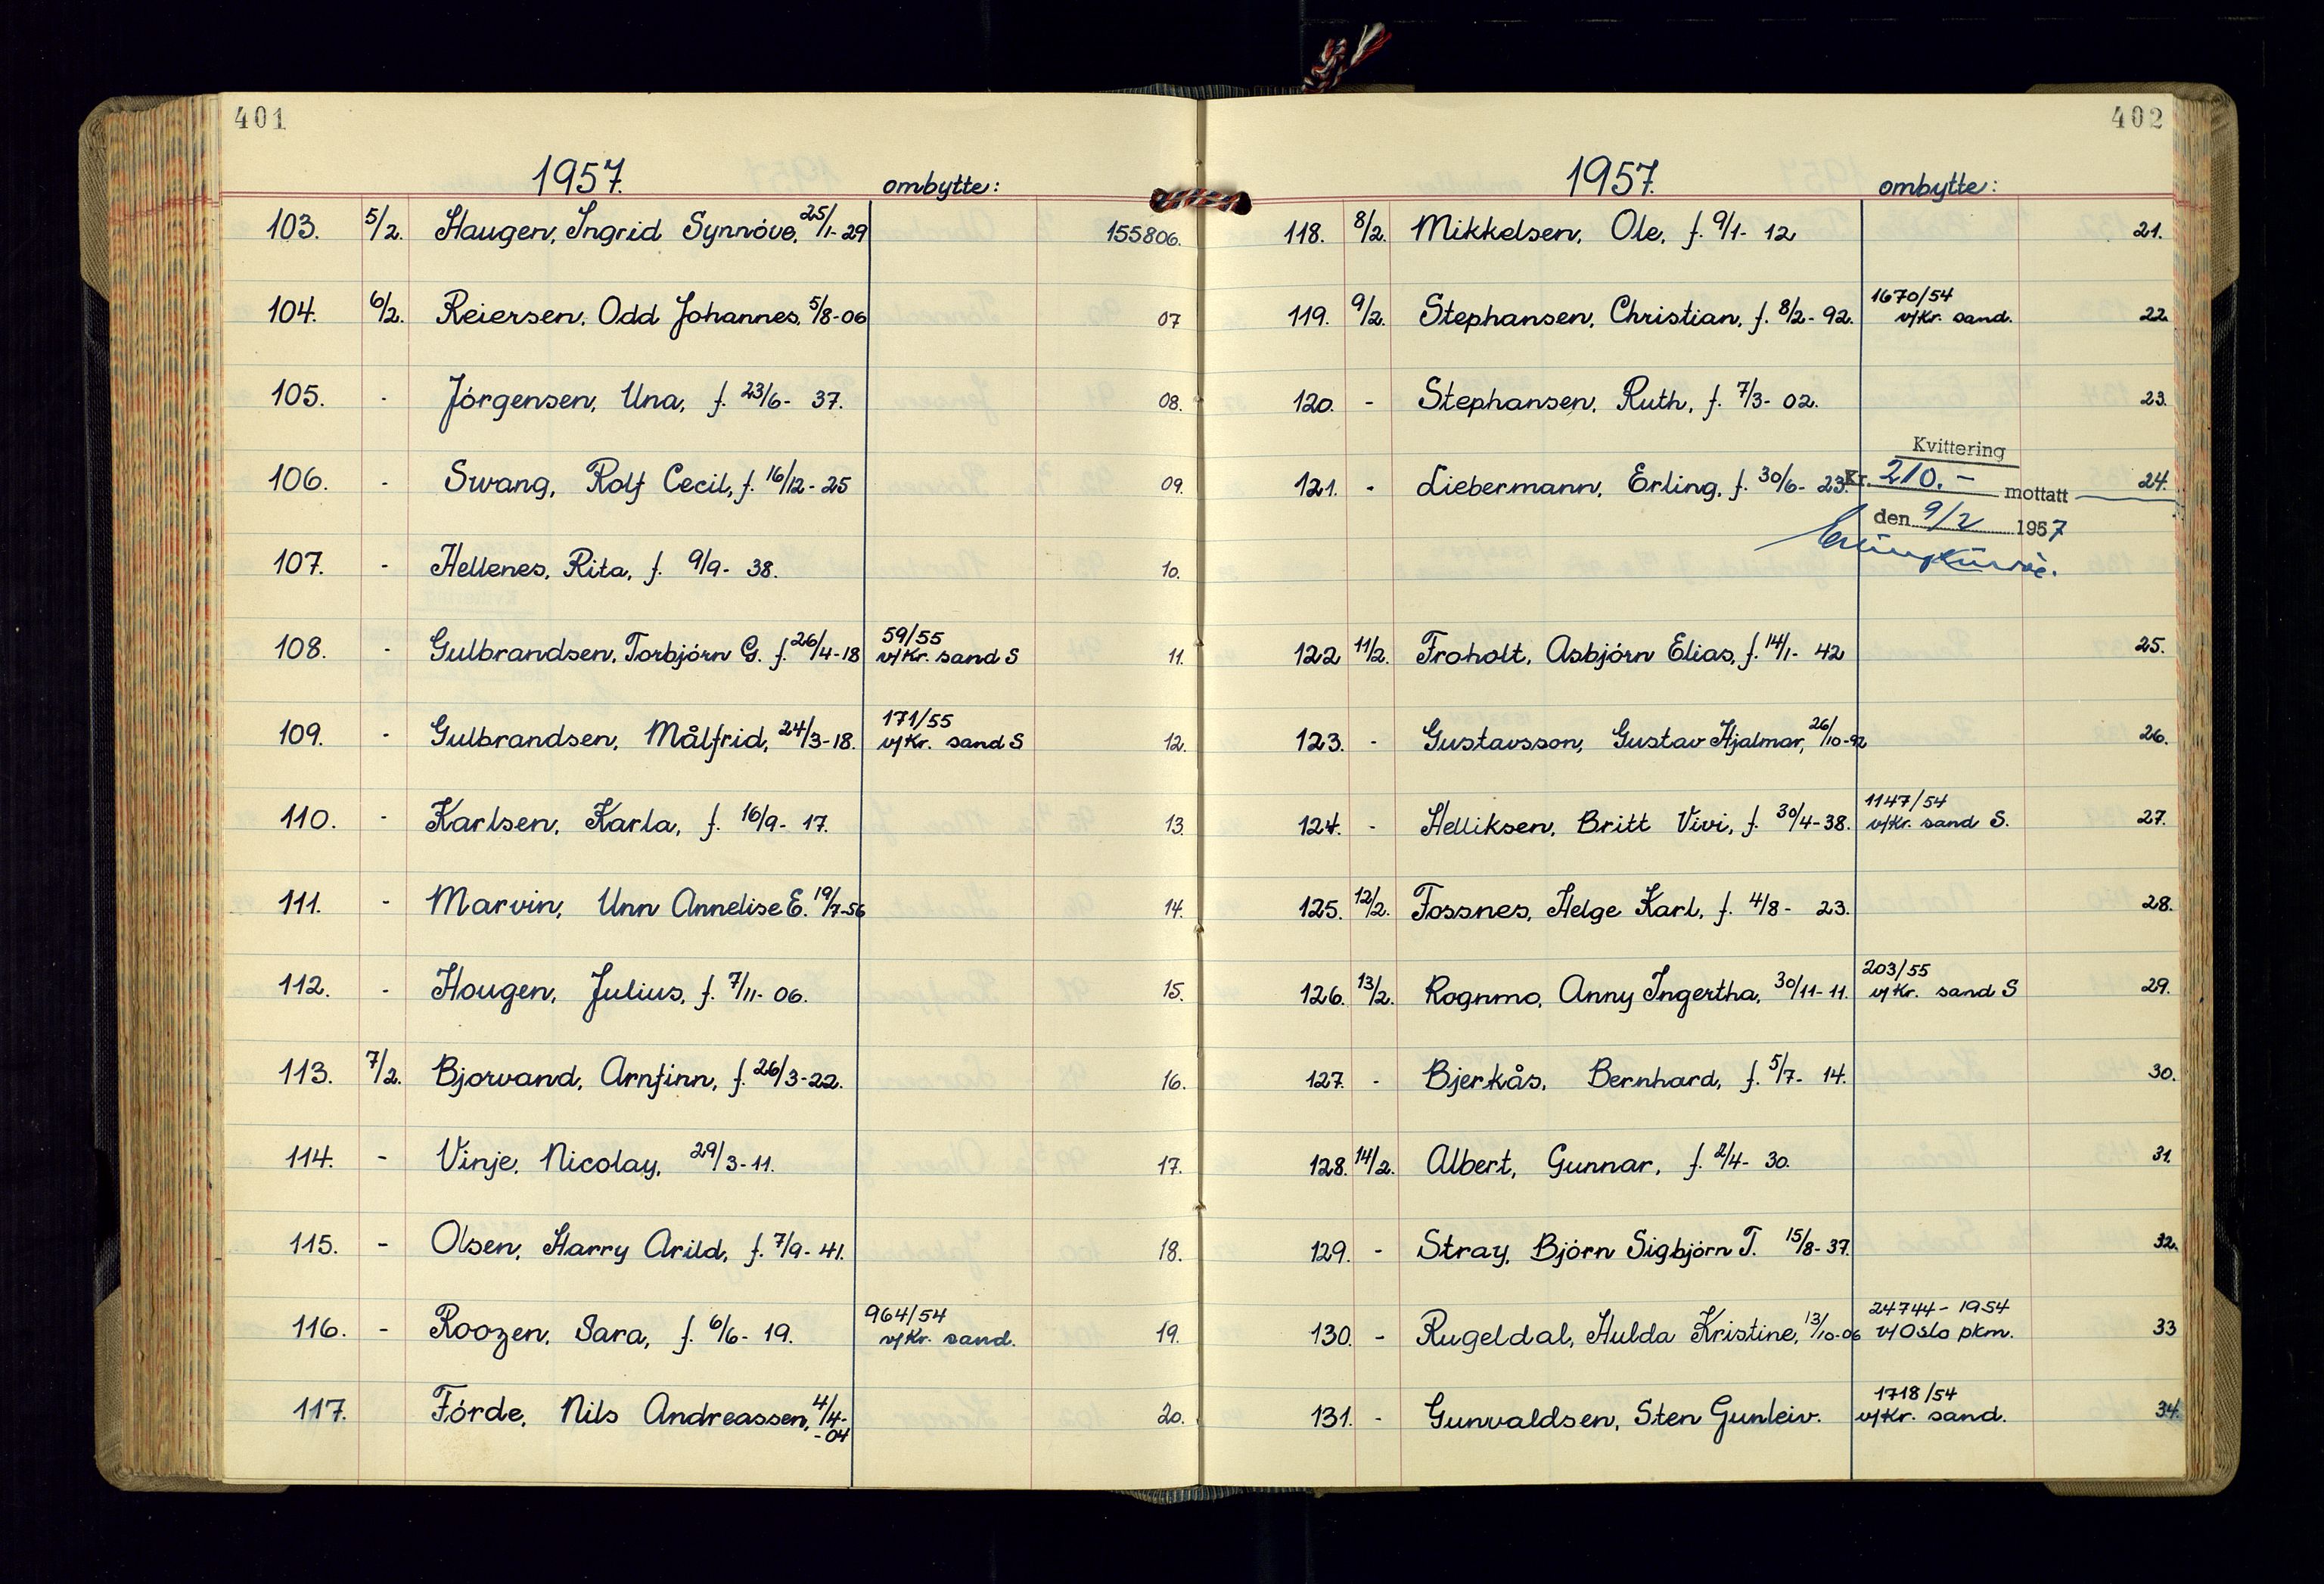 401
1957.
ombytte:
103. 5/2. Haugen, Ingrid Synnóve, 25/1-29 155806.
104. 6/2. Reiersen, Odd Johannes, 5/8-06 07
105. - Jórgensen, Una, f. 23/6- 37. 08.
106. - Swang, Rolf Cecil, f. 16/12- 25 09.
107. - Hellenes, Rita, f. 9/9- 38. 10.
108. - Gulbrandsen, Torbjórn G. f. 26/4-18 59/55
v/Kr. sand S 11.
109. - Gulbrandsen, Målfrid, 24/3-18. 171/55
v/Kr. sand S 12.
110. - Karlsen, Karla, f. 16/9- 17. 13.
111. - Marvin, Unn Annelise E. 19/7-56 14.
112. - Hougen, Julius, f. 7/11- 06. 15.
113. 7/2. Bjorvand, Arnfinn, f. 26/3-22. 16.
114. - Vinje, Nicolay, 29/3-11. 17.
115. - Olsen, Harry Arild, f. 7/9- 41. 18.
116. - Roozen, Sara, f. 6/6- 19. 964/54
v/Kr. sand. 19.
117. Fórde, Nils Andreassen, 4/4-
-04 20.
402
1957.
ombytte:
118. 8/2. Mikkelsen, Ole, f. 9/1- 12 21.
119. 9/2. Stephansen, Christian, f. 8/2- 92. 1670/54
v/Kr. sand. 22.
120. - Stephansen, Ruth, f. 7/3- 02. 23.
Kvittering
121. - Liebermann, Erling, f. 30/6- 23. Kr. 210.- mottatt 24.
den 9/2 1957
122 11/2. Froholt, Asbjórn Elias, f. 14/1- 42 25.
123. - Gustavsson, Gustav Hjalmar, 26/10-92 26.
124. - Helliksen, Britt Vivi, f. 30/4-38. 1147/54
v/Kr. sand S. 27.
125. 12/2. Fossnes, Helge Karl, f. 4/8- 23. 28.
126. 13/2. Rognmo, Anny Ingertha, 30/11-11. 203/55
v/Kr. sand S 29.
127. - Bjerkås, Bernhard, f. 5/7- 14. 30.
128. 14/2. Albert, Gunnar, f. 2/4- 30. 31.
129. - Stray, Bjórn Sigbjórn T. 15/8-37. 32.
130. - Rugeldal, Hulda Kristine, 13/10-06 24744- 1954
v/Oslo pkm. 33
131. - Gunvaldsen, Sten Gunleiv. 1718/54
v/Kr. sand. 34.